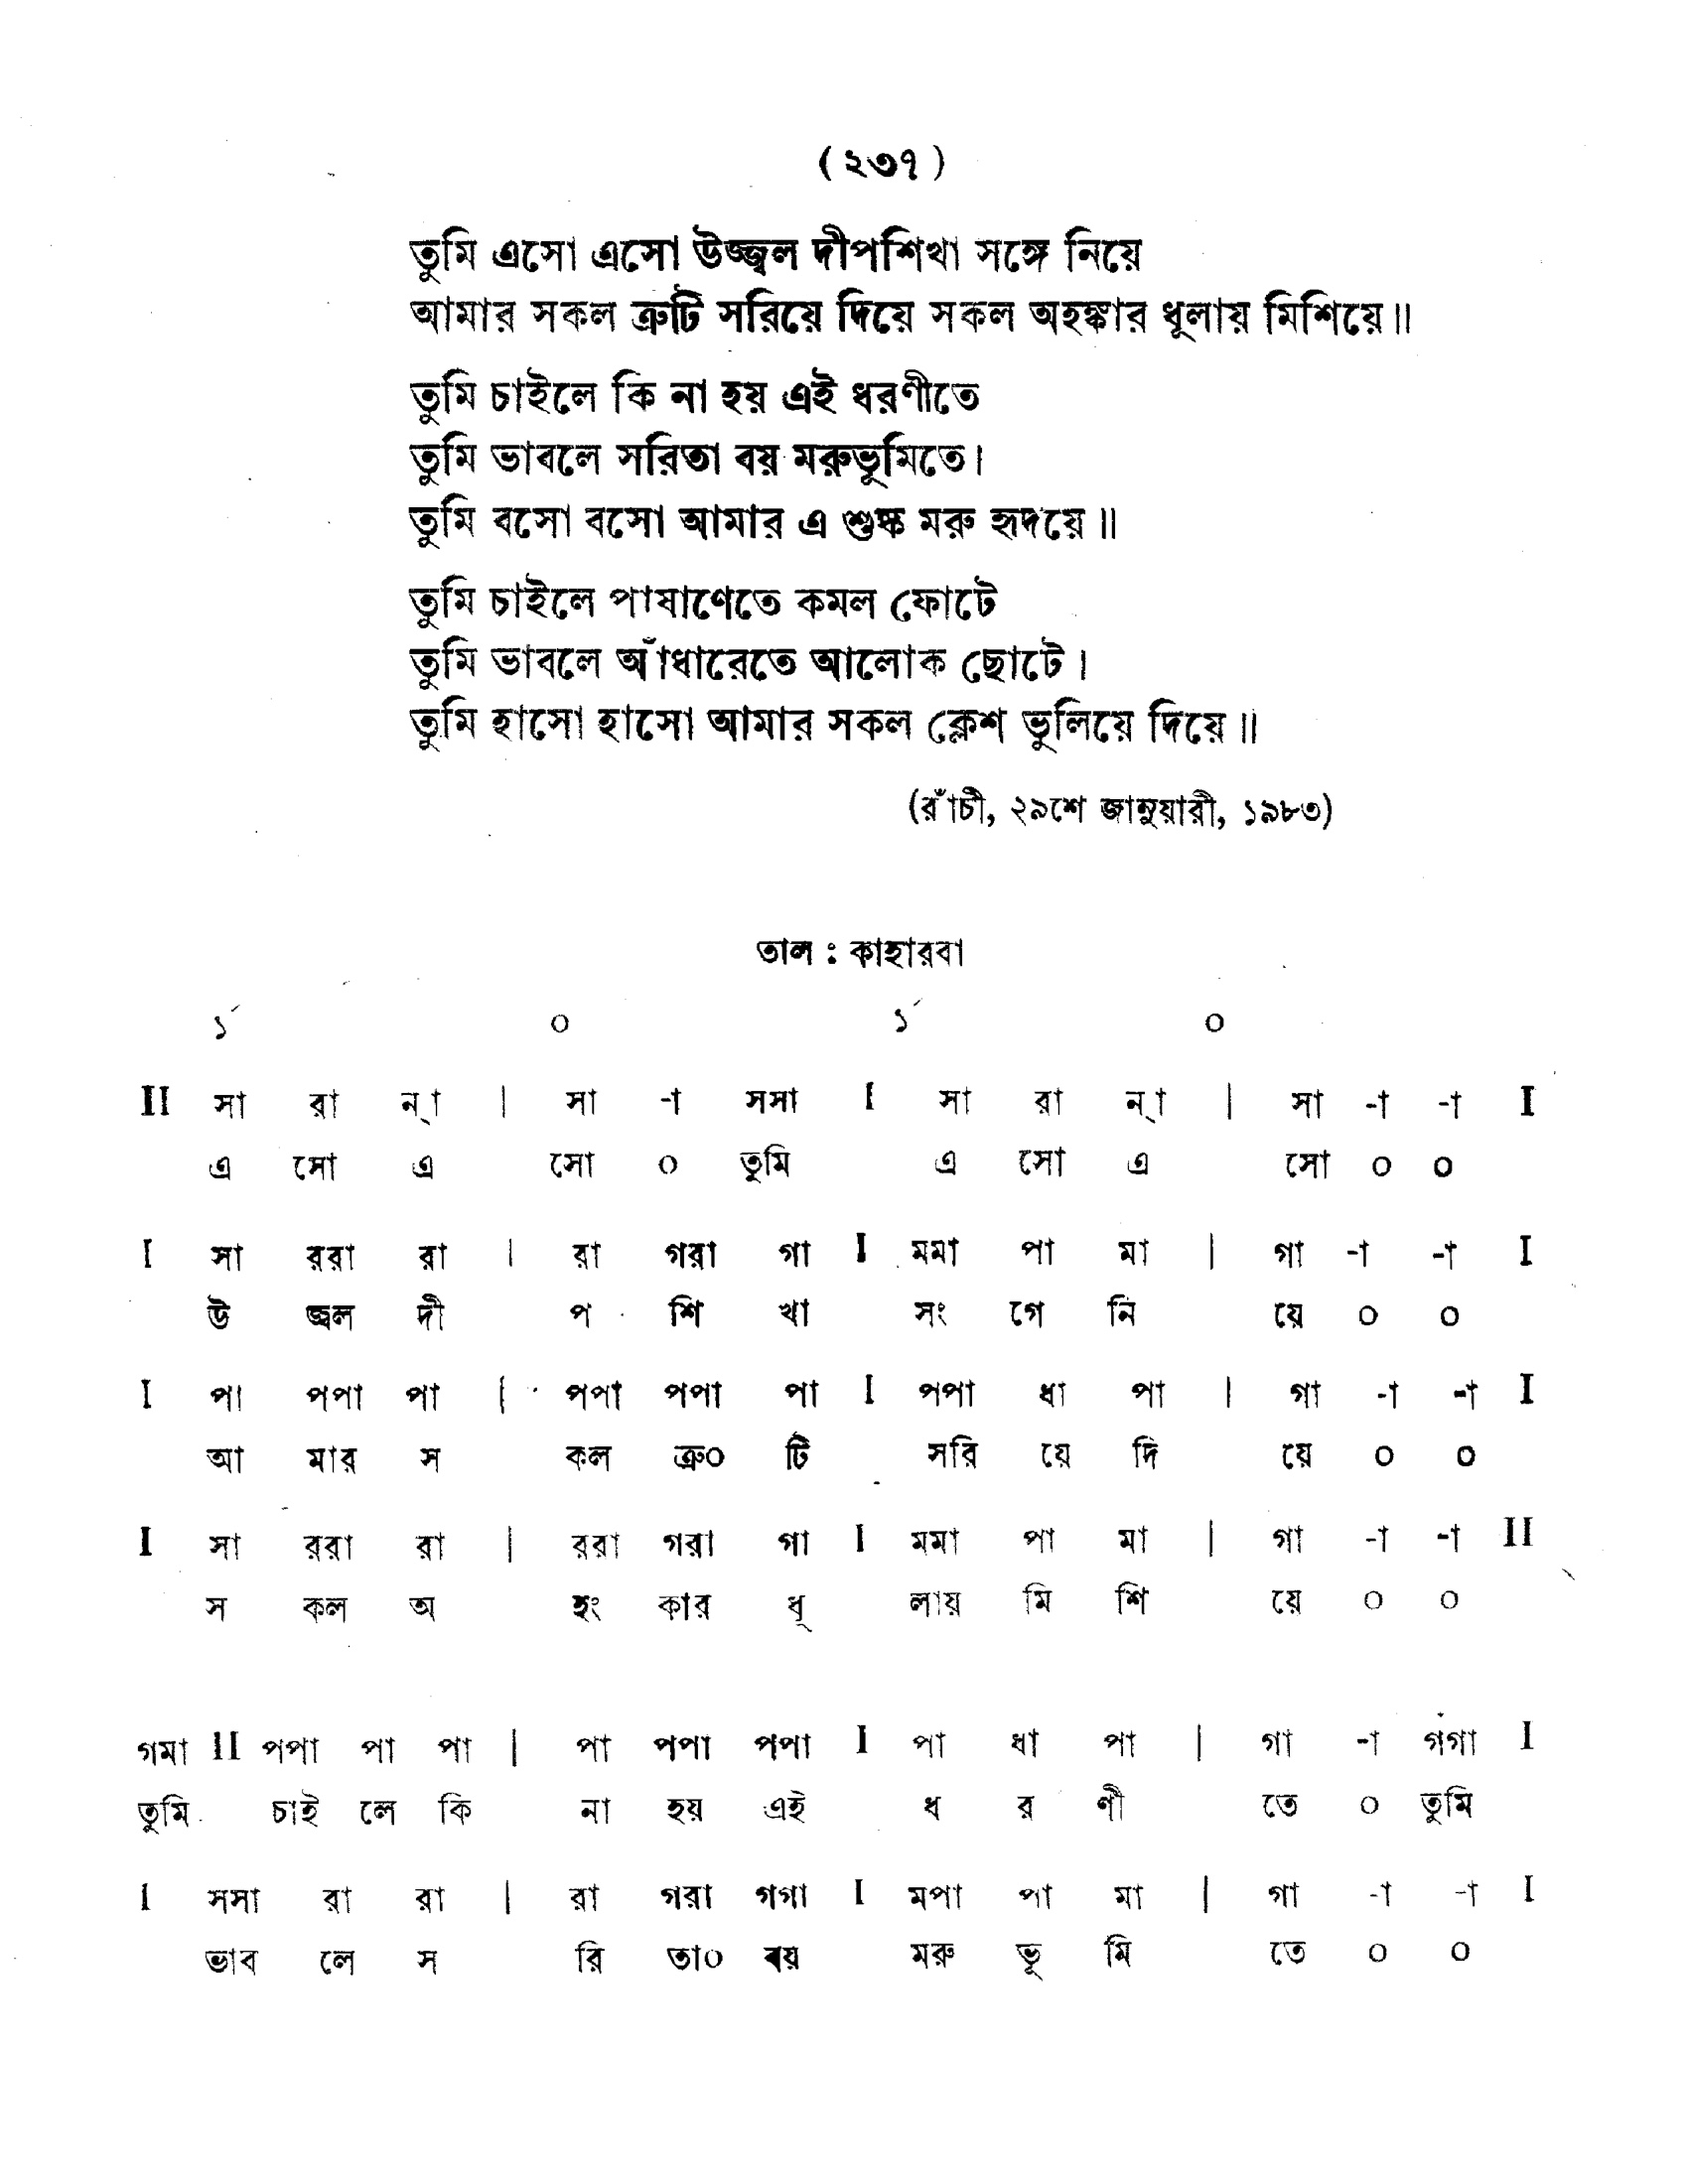 (২৩৭)
তুমি এসো এসো উজ্জ্বল দীপশিখা সঙ্গে নিয়ে
আমার সকল ত্রুটি সরিয়ে দিয়ে সকল অহঙ্কার ধূলায় মিশিয়ে॥
তুমি চাইলে কি না হয় এই ধরণীতে
তুমি ভাবলে সরিতা বয় মরুভূমিতে।
তুমি বসো বসো আমার এ শুষ্ক মরু হৃদয়ে॥
তুমি চাইলে পাষাণেতে কমল ফোটে
তুমি ভাবলে আঁধারেতে আলোক ছোটে।
তুমি হাসো হাসো আমার সকল ক্লেশ ভুলিয়ে দিয়ে॥
(রাঁচী, ২৯শে জানুয়ারী, ১৯৮৩)
তাল : কাহারবা
১́ ০ ১́ ০
II সা রা ন্‌া | সা -া সসা I সা রা ন্‌া | সা -া -া I
এ সো এ সো ০ তুমি এ সো এ সো ০ ০
I সা ররা রা | রা গরা গা I মমা পা মা | গা -া -া I
উ জ্বল দী প শি খা সং গে নি য়ে ০ ০
I পা পপা পা | পপা পপা পা I পপা ধা পা | গা -া -া I
আ মার স কল ত্রু০ টি সরি য়ে দি য়ে ০ ০
I সা ররা রা | ররা গরা গা I মমা পা মা | গা -া -া II
স কল অ হং কার ধূ লায় মি শি য়ে ০ ০
গমা II পপা পা পা | পা পপা পপা I পা ধা পা | গা -া গগা I
তুমি চাই লে কি না হয় এই ধ র ণী তে ০ তুমি
I সসা রা রা | রা গরা গগা I মপা পা মা | গা -া -া I
ভাব লে স রি তা০ বয় মরু ভূ মি তে ০ ০